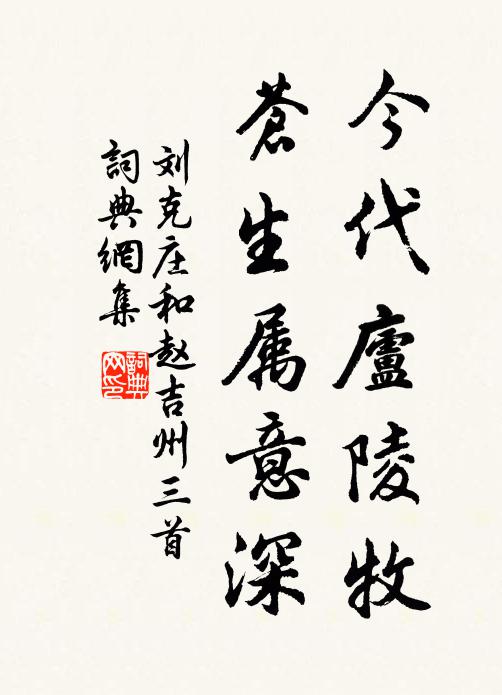 今代廬陵牧
蒼生属意深
刘克庄和赵吉州三首
詞典網集
詞典网印